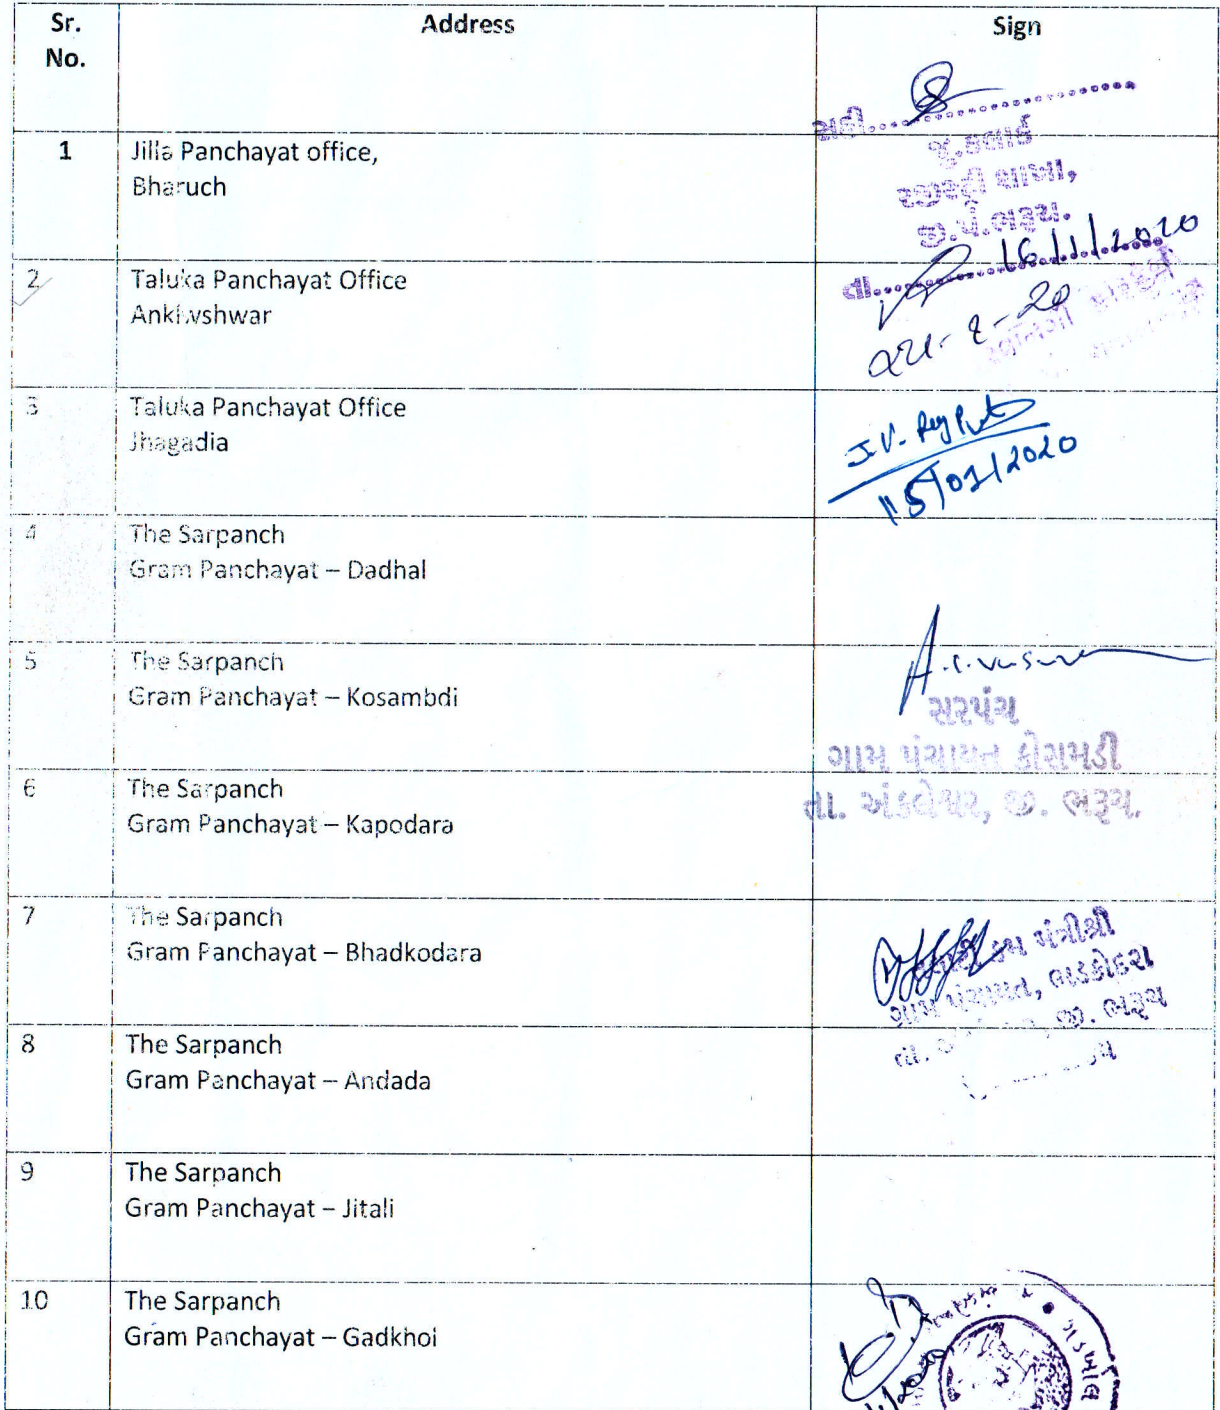 Sr.
No.
Address
Sign
સહી
જુ.કલાર્ક
રજીસ્ટ્રી શાખા,
જી.પં.ભરૂચ.
તા. 16/1/2020
1
Jilla Panchayat office,
Bharuch
2
Taluka Panchayat Office
Anklwshwar
3
Taluka Panchayat Office
Jhagadia
J.V. Rajput
15/01/2020
4
The Sarpanch
Gram Panchayat – Dadhal
5
The Sarpanch
Gram Panchayat – Kosambdi
સરપંચ
ગામ પંચાયત કોસમડી
તા. અંકલેશ્વર, જી. ભરૂચ.
6
The Sarpanch
Gram Panchayat – Kapodara
7
The Sarpanch
Gram Panchayat – Bhadkodara
મંત્રીશ્રી
ગામ પંચાયત, ભડકોદરા
તા. જી. ભરૂચ
8
The Sarpanch
Gram Panchayat – Andada
9
The Sarpanch
Gram Panchayat – Jitali
10
The Sarpanch
Gram Panchayat – Gadkhol
ગડખોલ